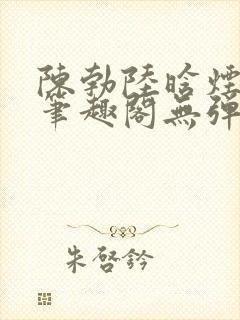 陳勃陸晗煙
筆趣閣無彈
朱啓鈐